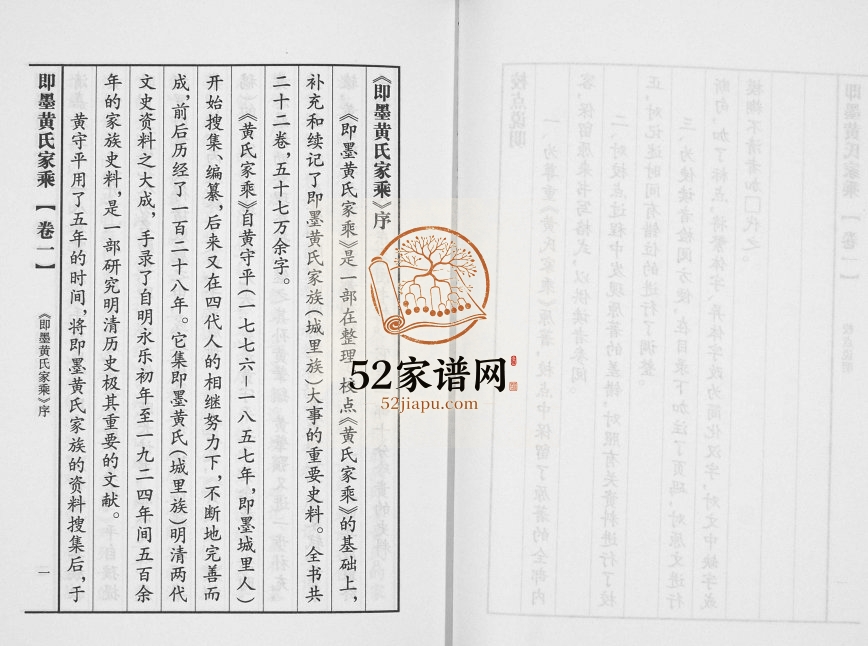 《即墨黄氏家乘》序
《即墨黄氏家乘》是一部在整理、校点《黄氏家乘》的基础上,
补充和续记了即墨黄氏家族(城里族)大事的重要史料。全书共
二十二卷,五十七万余字。
《黄氏家乘》自黄守平(一七七六–一八五七年,即墨城里人)
开始搜集、编纂,后来又在四代人的相继努力下,不断地完善而
成,前后历经了一百二十八年。它集即墨黄氏(城里族)明清两代
文史资料之大成,手录了自明永乐初年至一九二四年间五百余
年的家族史料,是一部研究明清历史极其重要的文献。
黄守平用了五年的时间,将即墨黄氏家族的资料搜集后,于
即墨黄氏家乘【卷一】
《即墨黄氏家乘》序
一
52家谱网
52jiapu.com